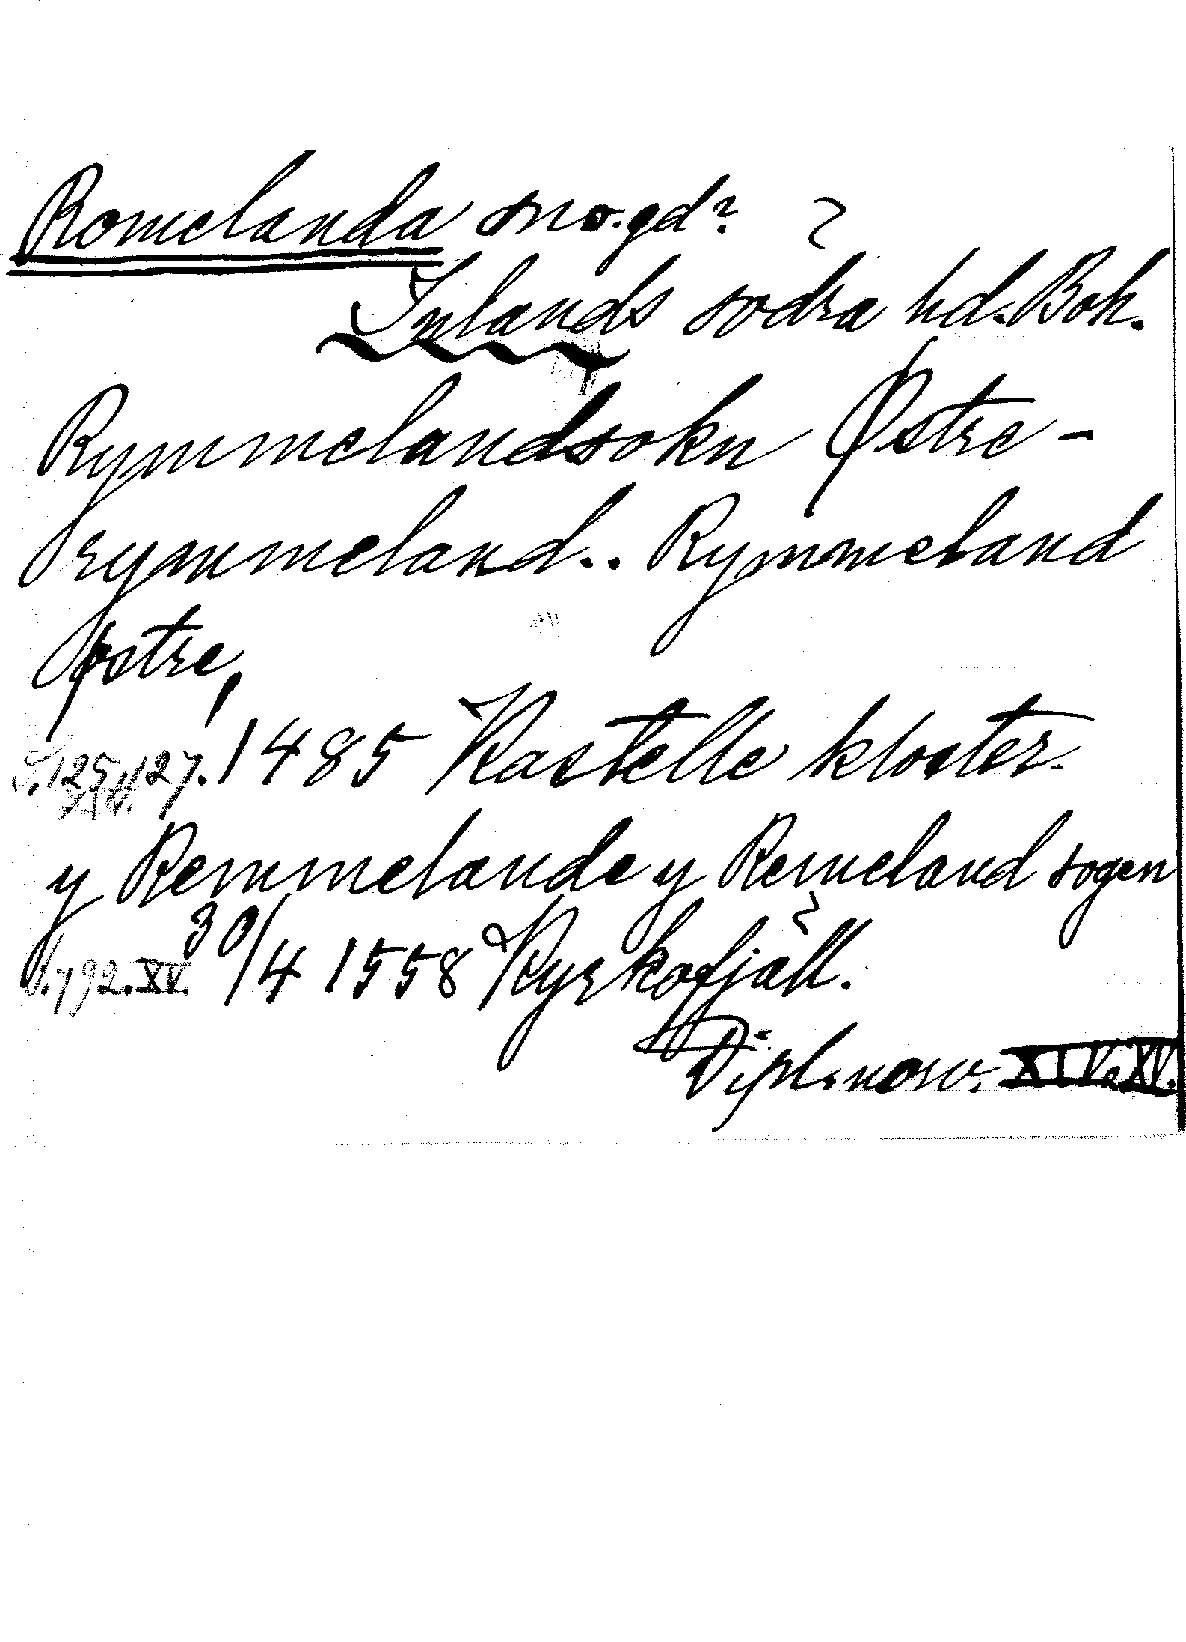 Romelanda sn o. gd? ?
Inlands södra hd. Boh.
Rymmelandsokn Østre-
rymmeland.. Rymmeland
Østre,
S. 125, 127. 1485 Kastelle kloster.
XIV.
y Remmelande y Remeland sogen
S. 792. XV. 30/4 1558 Kyrkofjäll.
Dipl. norv. XIV. XV.